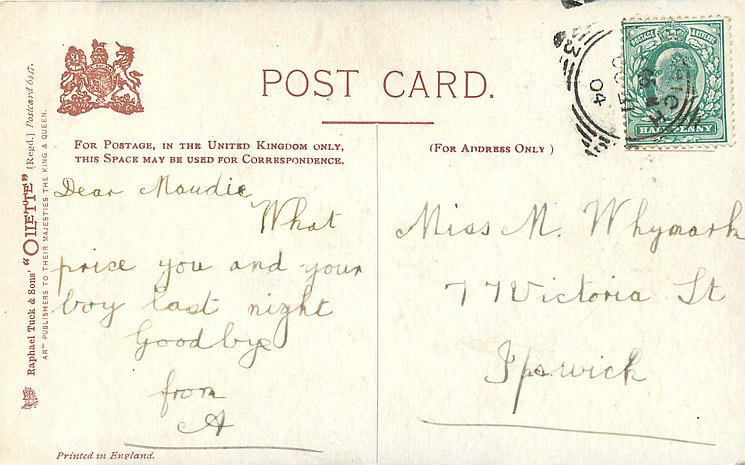 POST CARD.
FOR POSTAGE, IN THE UNITED KINGDOM ONLY,
THIS SPACE MAY BE USED FOR CORRESPONDENCE.
(FOR ADDRESS ONLY)
Dear Maudie
What
price you and your
boy last night
Goodbye
from
A
Miss M. Whymark
77 Victoria St
Ipswich
Raphael Tuck & Sons' "OILETTE" [Regd.] Postcard 6447.
ART PUBLISHERS TO THEIR MAJESTIES THE KING & QUEEN.
Printed in England.
POSTAGE & REVENUE
HALFPENNY
04